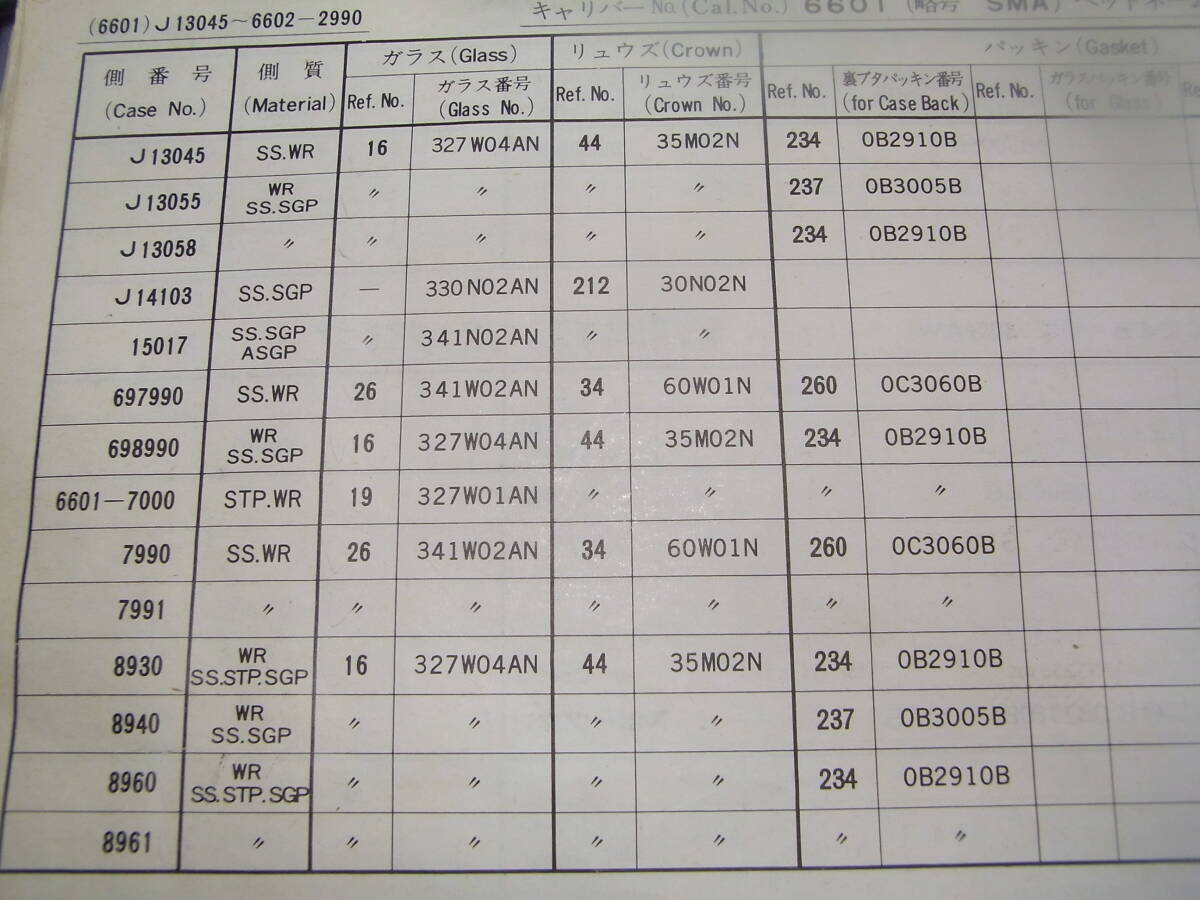 (6601) J 13045～6602－2990
キャリバー No.(Cal.No.) 6601 (略号 SMA)
側番号 側質 ガラス(Glass) リュウズ(Crown) パッキン(Gasket)
(Case No.) (Material) Ref. No. ガラス番号 (Glass No.) Ref. No. リュウズ番号 (Crown No.) Ref. No. 裏ブタパッキン番号 (for Case Back) Ref. No. ガラスパッキン番号 (for Glass) Re
J 13045 SS.WR 16 327W04AN 44 35M02N 234 0B2910B
J 13055 WR SS.SGP 〃 〃 〃 〃 237 0B3005B
J 13058 〃 〃 〃 〃 〃 234 0B2910B
J 14103 SS.SGP — 330N02AN 212 30N02N
15017 SS.SGP ASGP 〃 341N02AN 〃 〃
697990 SS.WR 26 341W02AN 34 60W01N 260 0C3060B
698990 WR SS.SGP 16 327W04AN 44 35M02N 234 0B2910B
6601－7000 STP.WR 19 327W01AN 〃 〃 〃 〃
7990 SS.WR 26 341W02AN 34 60W01N 260 0C3060B
7991 〃 〃 〃 〃 〃 〃 〃
8930 WR SS.STP.SGP 16 327W04AN 44 35M02N 234 0B2910B
8940 WR SS.SGP 〃 〃 〃 〃 237 0B3005B
8960 WR SS.STP.SGP 〃 〃 〃 〃 234 0B2910B
8961 〃 〃 〃 〃 〃 〃 〃